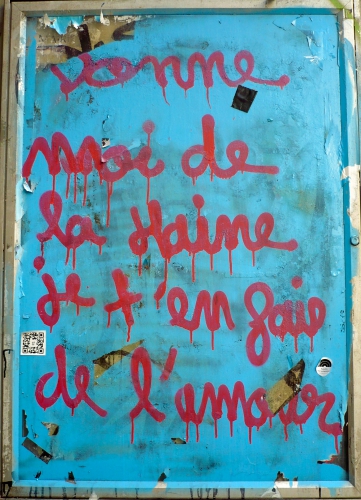 donne
moi de
la Haine
je t'en faie
de l'amour